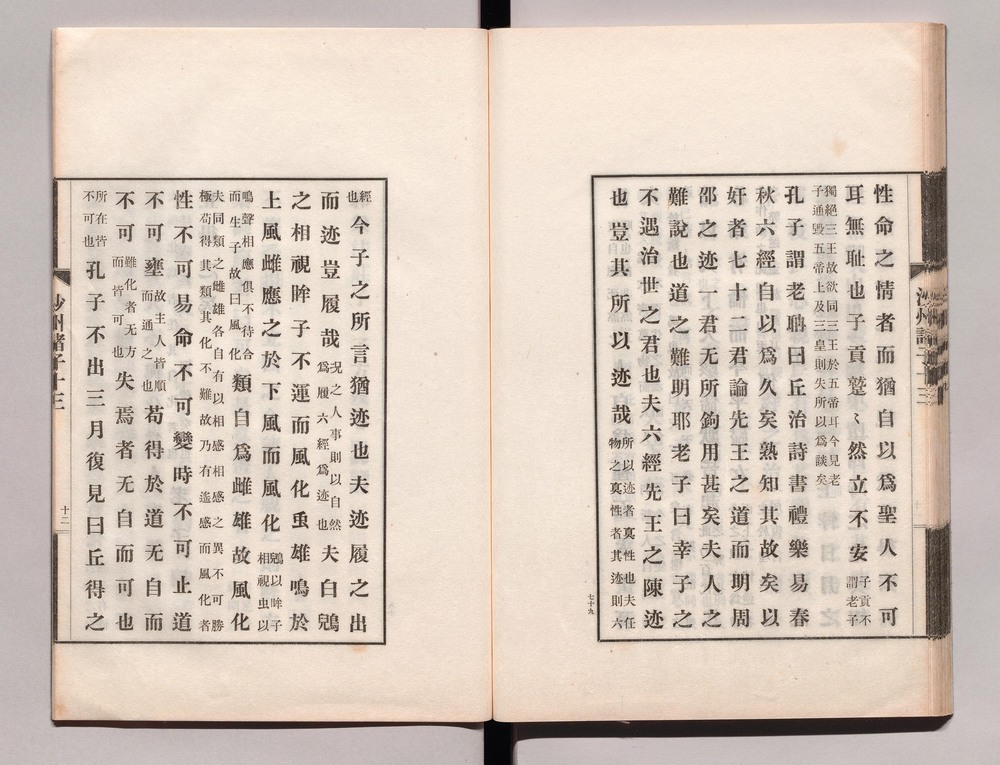 性命之情者而猶自以爲聖人不可
耳無耻也子貢蹵〻然立不安子貢不謂老子
獨絕三王故欲同三王於五帝耳今見老子通毀五帝上及三皇則失所以爲談矣
孔子謂老聃曰丘治詩書禮樂易春
秋六經自以爲久矣熟知其故矣以
奸者七十二君論先王之道而明周
邵之迹一君无所鉤用甚矣夫人之
難說也道之難明耶老子曰幸子之
不遇治世之君也夫六經先王之陳迹
也豈其所以迹哉所以迹者真性也夫任物之真性者其迹則六
七十九
經也今子之所言猶迹也夫迹履之出
而迹豈履哉況之人事則以自然爲履六經爲迹也夫白鶂
之相視眸子不運而風化虫雄鳴於
上風雌應之於下風而風化鶂以眸子相視虫以
鳴聲相應俱不待合而生子故曰風化類自爲雌雄故風化
夫同類之雌雄各自有以相感相感之異不可勝極苟得其類其化不難故乃有遙感而風化者
性不可易命不可變時不可止道
不可壅故主人皆順而通之也苟得於道无自而
不可難化者无方而皆可也失焉者无自而可也
所在皆不可也孔子不出三月復見曰丘得之
沙州諸子十三
十二